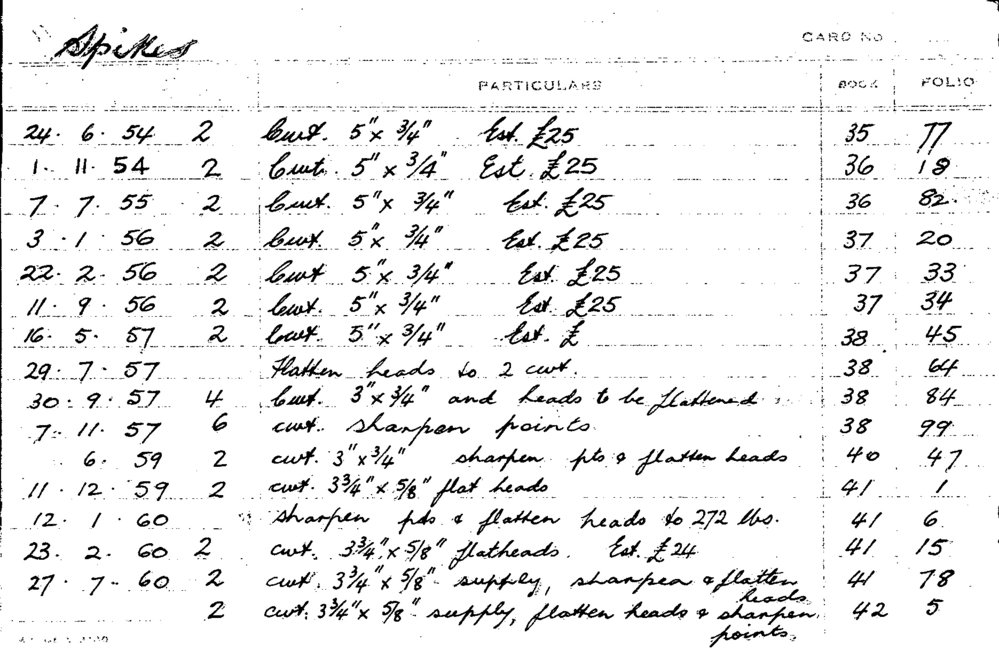 Spikes
CARD No
PARTICULARS BOOK FOLIO
24. 6. 54 2 Cwt. 5" x 3/4" Est. £25 35 77
1. 11. 54 2 Cwt. 5" x 3/4" Est. £25 36 18
7. 7. 55 2 Cwt. 5" x 3/4" Est. £25 36 82
3. 1. 56 2 Cwt. 5" x 3/4" Est. £25 37 20
22. 2. 56 2 Cwt 5" x 3/4" Est. £25 37 33
11. 9. 56 2 Cwt. 5" x 3/4" Est. £25 37 34
16. 5. 57 2 Cwt. 5" x 3/4" Est. £ 38 45
29. 7. 57 Flatten heads to 2 cwt. 38 64
30. 9. 57 4 Cwt. 3" x 3/4" and heads to be flattened 38 84
7. 11. 57 6 cwt. sharpen points 38 99
6. 59 2 cwt. 3" x 3/4" sharpen pts & flatten heads 40 47
11. 12. 59 2 cwt. 3 3/4" x 5/8" flat heads 41 1
12. 1. 60 sharpen pts & flatten heads to 272 lbs. 41 6
23. 2. 60 2 cwt. 3 3/4" x 5/8" flatheads. Est. £24 41 15
27. 7. 60 2 cwt. 3 3/4" x 5/8" supply, sharpen & flatten 41 78
heads
2 cwt. 3 3/4" x 5/8" supply, flatten heads & sharpen 42 5
points.